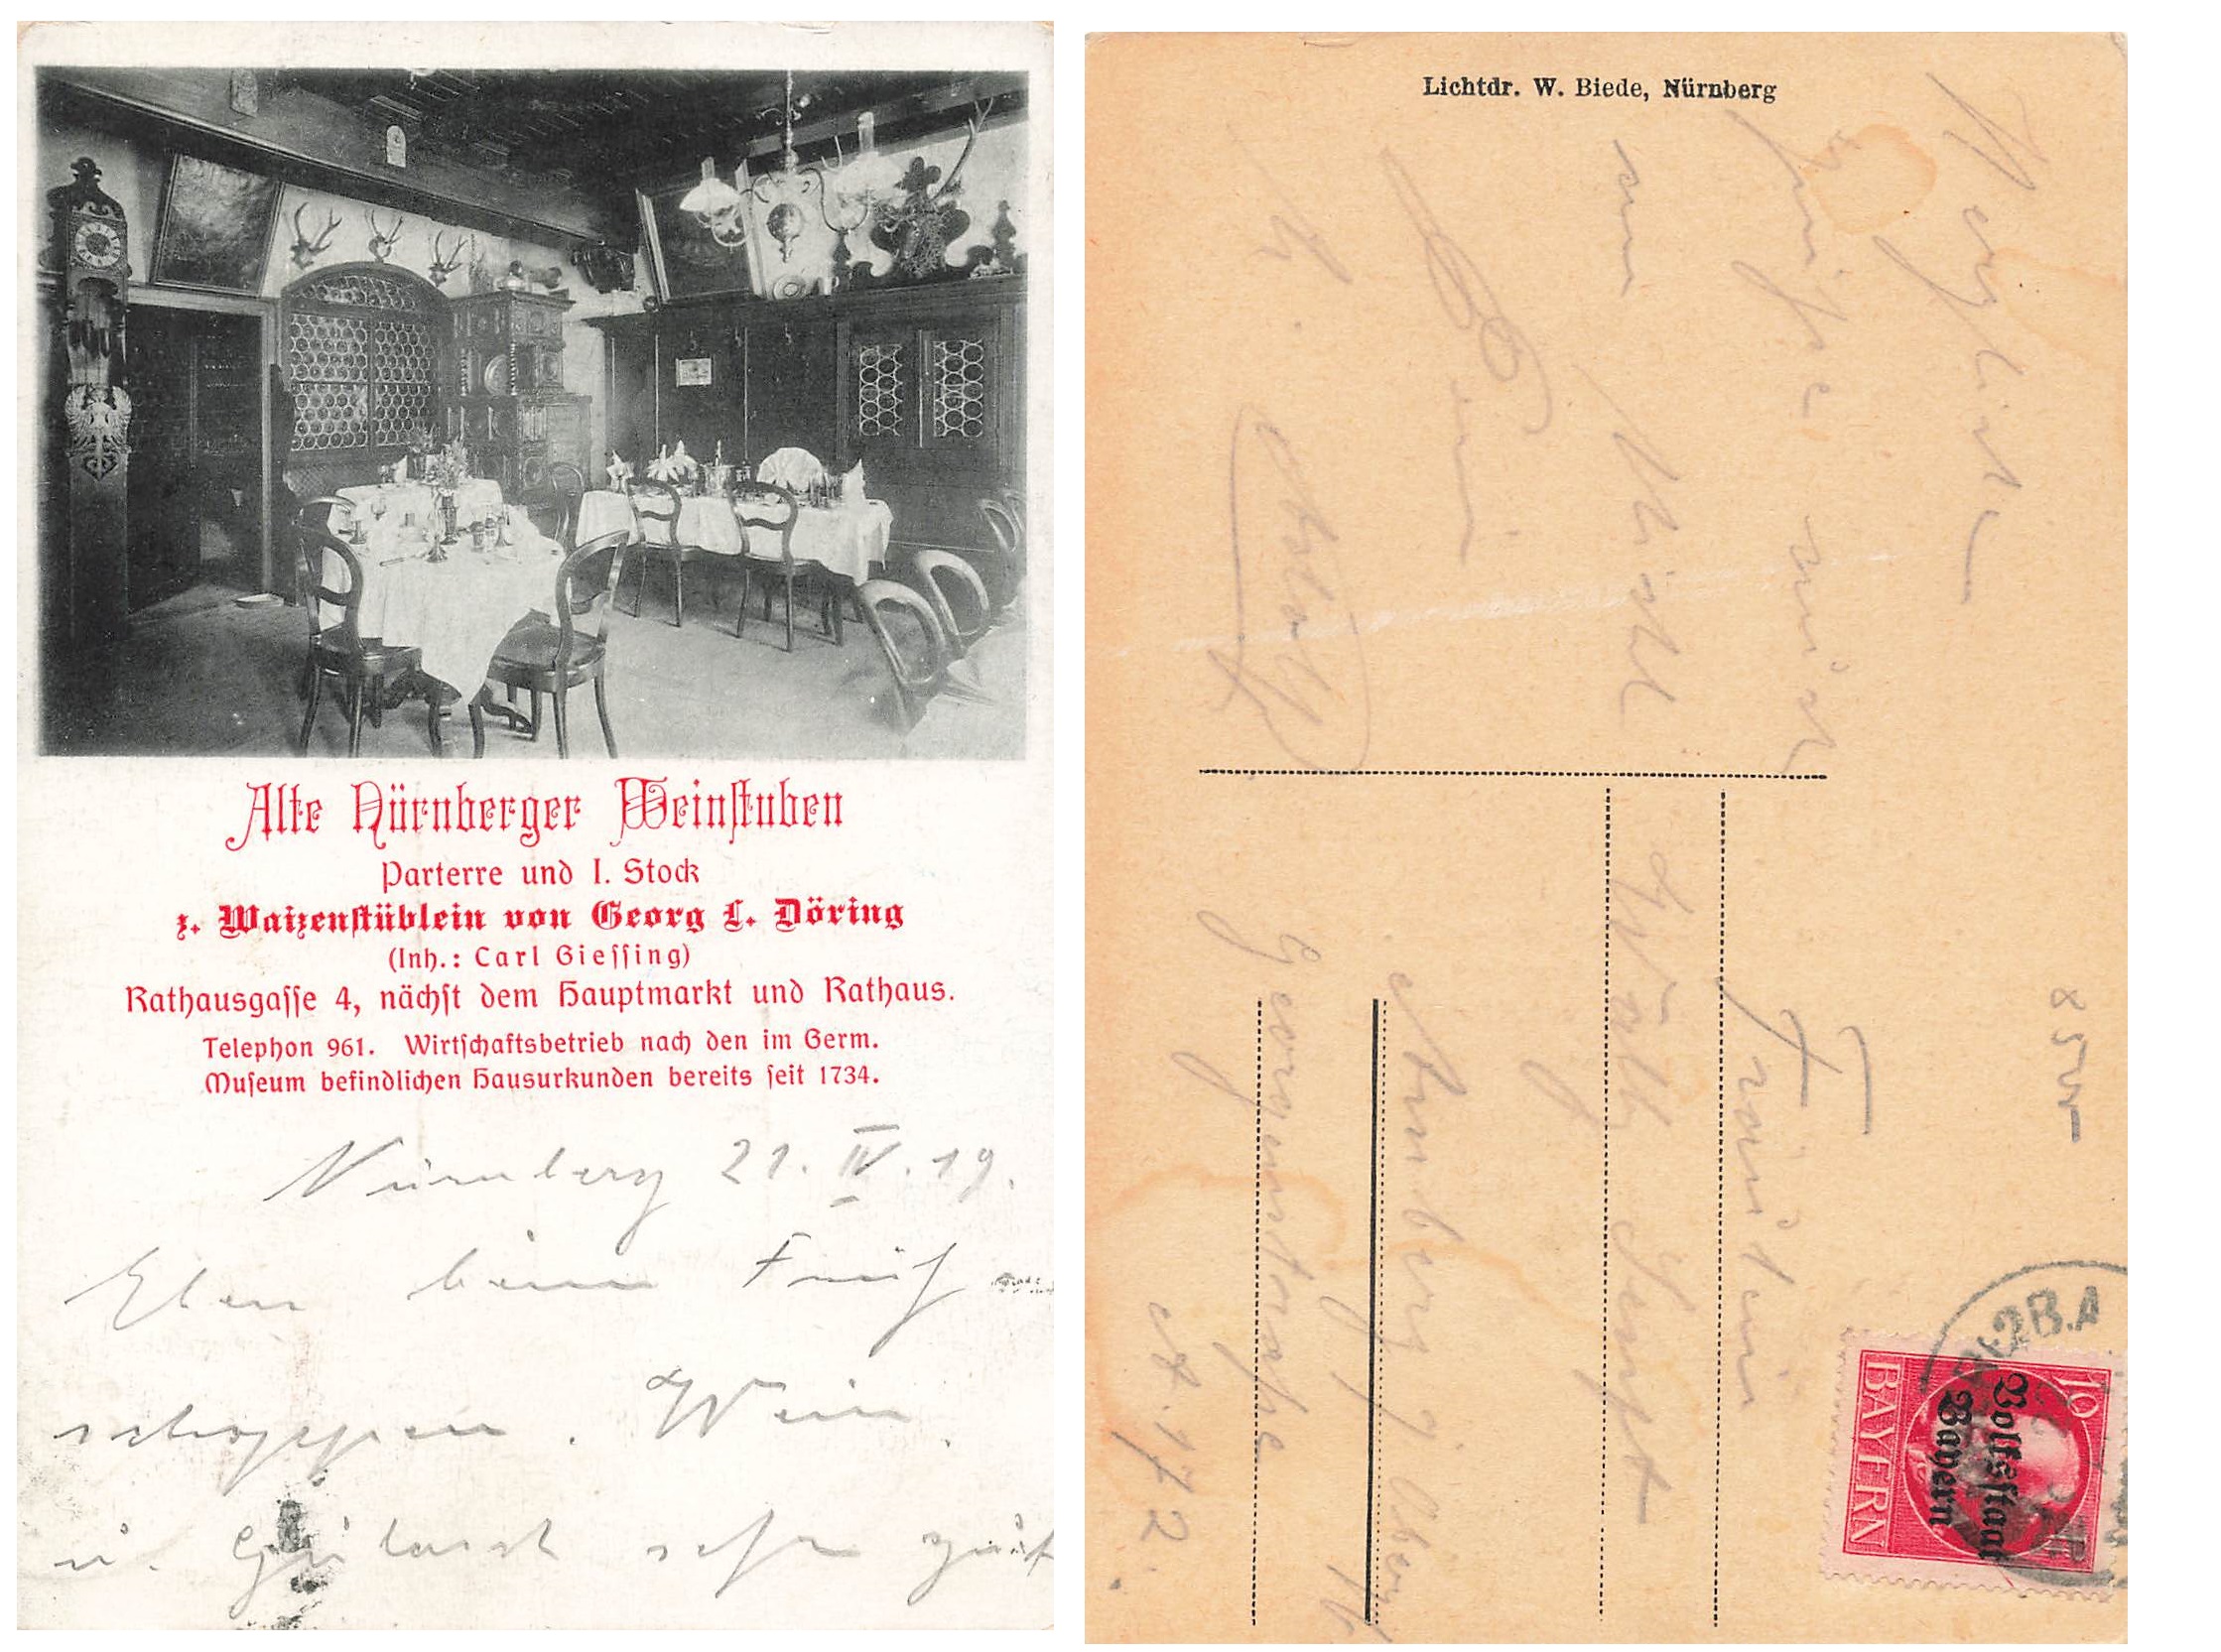 Alte Nürnberger Weinstuben
Parterre und I. Stock
z. Waizenstüblein von Georg L. Döring
(Inh.: Carl Giessing)
Rathausgasse 4, nächst dem Hauptmarkt und Rathaus.
Telephon 961. Wirtschaftsbetrieb nach den im Germ.
Museum befindlichen Hausurkunden bereits seit 1734.
Nürnberg 21. IV. 19.
Eben beim Früh
schoppen. Wein
u. Gulasch sehr gut
Lichtdr. W. Biede, Nürnberg
Herzliche
Grüsse
Dein
Adolf
Fräulein
Senft
Amberg
Georgenstrasse
172.
10
BAYERN
Volksstaat
Bayern